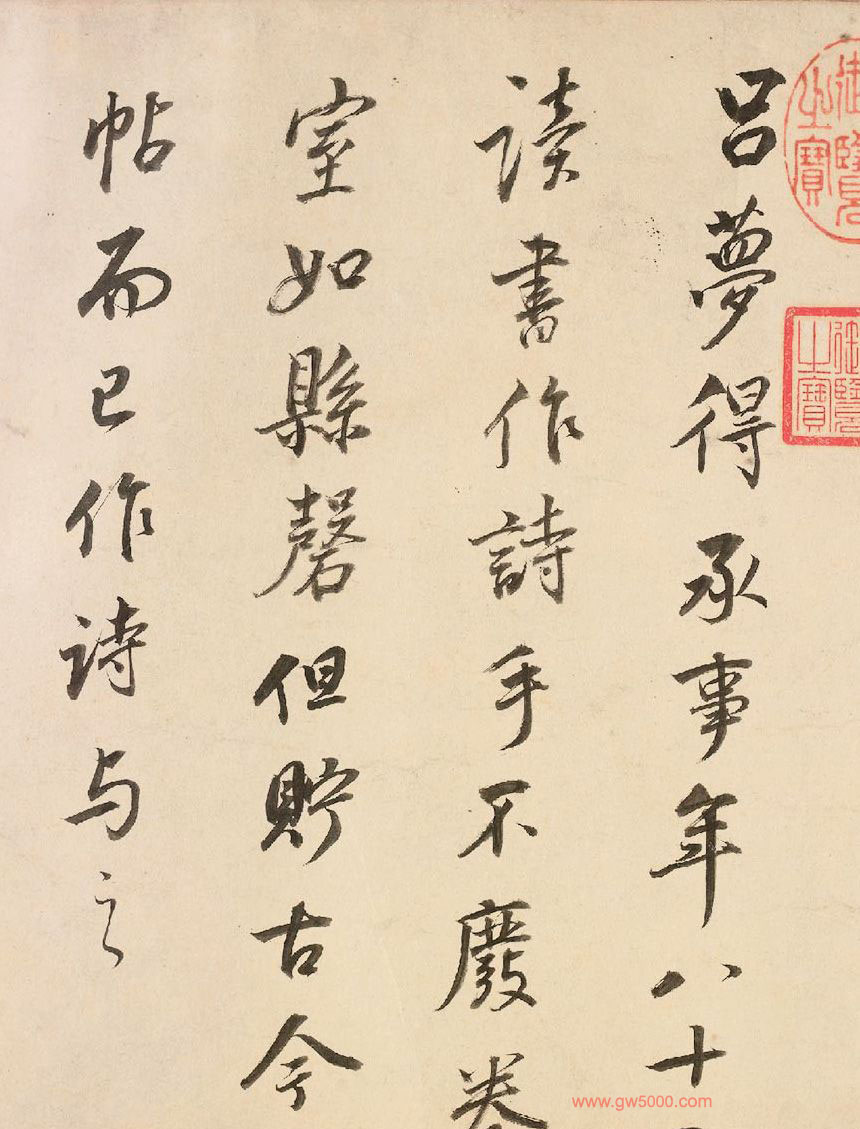 呂夢得承事年八十
讀書作詩手不廢卷
室如縣磬但貯古今
帖而已作詩与之
御覽之寶
御覽之寶
www.gw5000.com